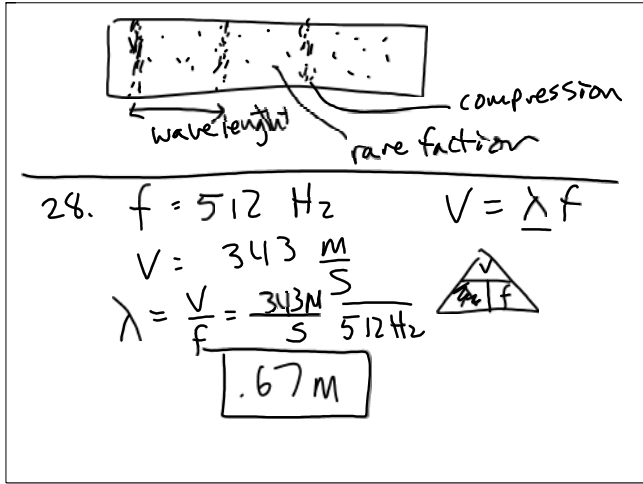 compression
wavelenght
rarefaction
28. f = 512 Hz V = λ f
V = 343 m/s
λ = V/f = 343M/S /512Hz
V
f
.67 M